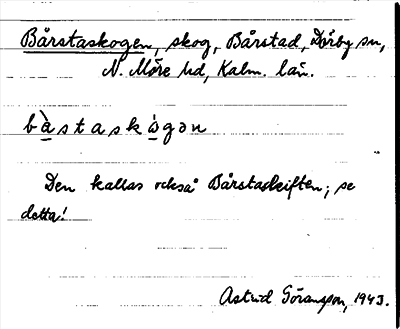 Bårstaskogen, skog, Bårstad, Dörby sn,
N. Möre hd, Kalm. län.
bàstaskógən
Den kallas också Bårstaskiften; se
detta!
Astrid Göransson, 1943.